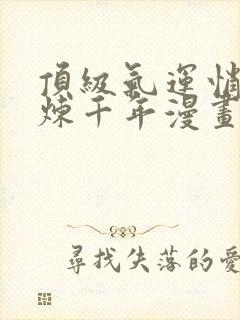 頂級氣運悄
煉千年漫畫
尋找失落的愛